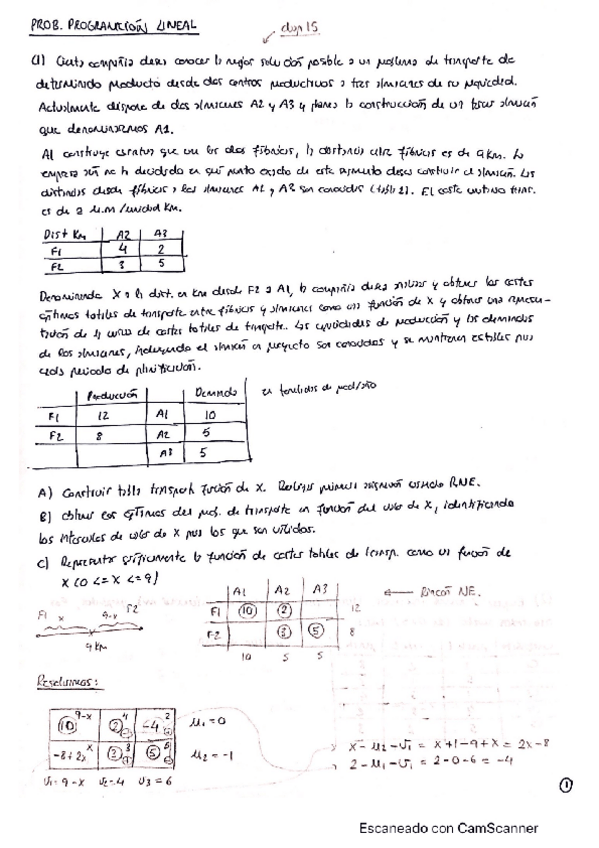 PROB. PROGRAMACIÓN LINEAL
① Cierta compañía desea conocer la mejor solución posible a un problema de transporte de
determinado producto desde dos centros productivos a tres almacenes de su propiedad.
Actualmente dispone de dos almacenes A2 y A3 y planea la construcción de un tercer almacén
que denominaremos A1.
A1 construye carretera que une las dos fábricas, la distancia entre fábricas es de 9 km. La
empresa aún no ha decidido en qué punto exacto de este desea construir el almacén. Las
distancias desde fábricas a los almacenes A2 y A3 son conocidas (tabla 1). El coste unitario
es de 2 u.m/unidad km.
Dist Km A2 A3
F1 4 2
F2 3 5
Denominando X a la dist. en km desde F2 a A1, la compañía desea analizar y obtener los costes
óptimos totales de transporte entre fábricas y almacenes como una función de X y obtener una
de la curva de costes totales de transporte. Las capacidades de producción y las demandas
de los almacenes, incluyendo el almacén en proyecto son conocidas y se mantienen estables para
cada periodo de planificación.
Producción Demanda en toneladas de prod/año
F1 12 A1 10
F2 8 A2 5
A3 5
A) Construir tabla transporte función de X. Realizar primera asignación usando RNE.
B) obtener los óptimos del prob. de transporte en función del valor de X, identificando
los intervalos de valor de X para los que son válidos.
C) Representar gráficamente la función de costes totales de transp. como un función de
X (0 <= X <= 9)
A1 A2 A3 ← Rincón NE.
F1 ⑩ ② 12
F2 ③ ⑤ 8
10 5 5
F1 x 9-x F2
9 km
Resolvemos:
⑩ 9-x ② 4 -4 2 μ1 = 0
-8+2x x ③ 3 ⑤ 5 μ2 = -1
v1 = 9-x v2 = 4 v3 = 6
x - μ2 - v1 = x+1-9+x = 2x-8
2 - μ1 - v1 = 2-0-6 = -4
①
Escaneado con CamScanner